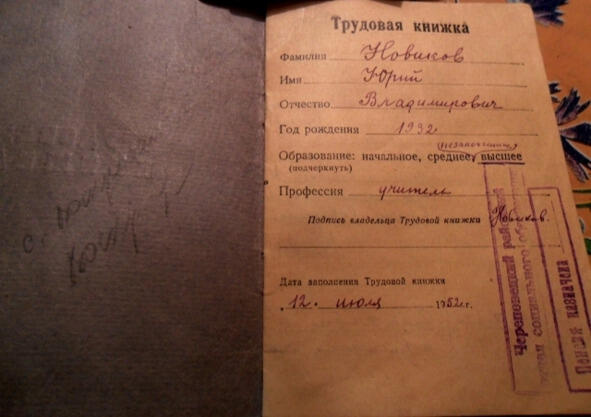 Трудовая книжка
Фамилия Новиков
Имя Юрий
Отчество Владимирович
Год рождения 1932
незаконченное
Образование: начальное, среднее, высшее
(подчеркнуть)
Профессия учитель
Подпись владельца Трудовой книжки Новиков.
Дата заполнения Трудовой книжки
12. июля 1952 г.
Череповецкий
отдел социального
Пенсия назначена